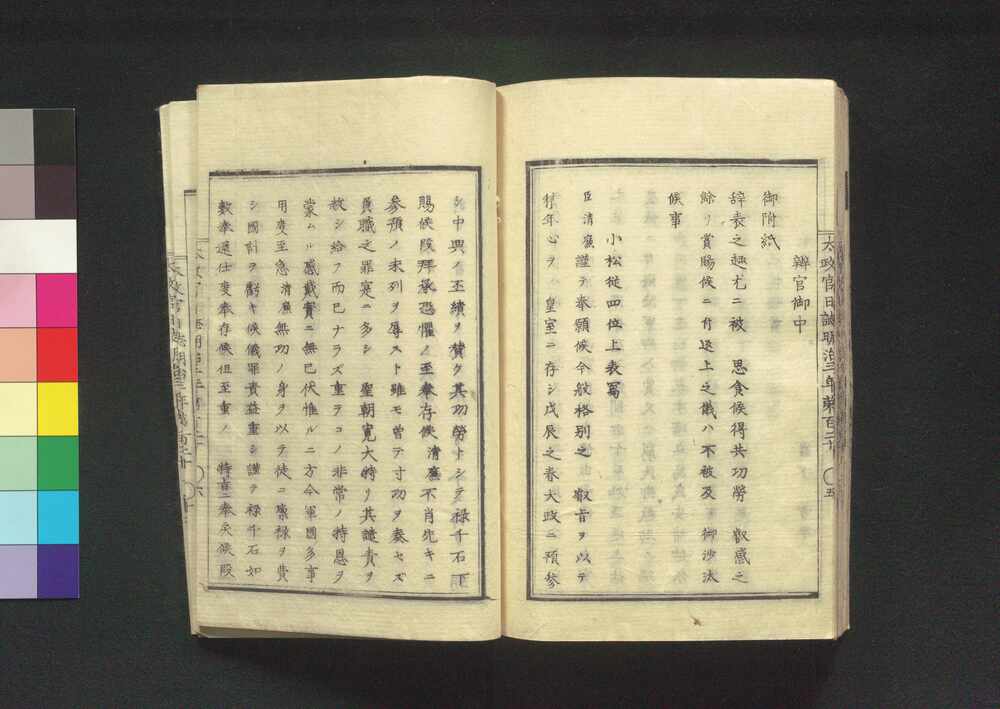 辨官御中
御附紙
辞表之趣尤ニ被 思食候得共功勞 叡感之
餘リ賞賜候ニ付返上之儀ハ不被及 御沙汰
候事
小松従四位上表寫
臣清廉謹テ奉願候今般格別之 叡旨ヲ以テ
積年心ヲ 皇室ニ存シ戊辰之春大政ニ預參
シ中興ノ丕績ヲ賛ク其功勞トシテ禄千石下
賜候段拜承恐懼ノ至奉存候清廉不肖先キニ
參預ノ末列ヲ辱スト雖モ曽テ寸功ヲ奏セズ
曠職之罪寔ニ多シ 聖朝寛大特リ其譴責ヲ
赦シ給フ而已ナラズ重テコノ非常ノ特恩ヲ
蒙ムル感戴實ニ無已伏惟ルニ方今軍國多事
用度至急清廉無功ノ身ヲ以テ徒ニ禀禄ヲ費
シ國計ヲ虧キ候儀罪責益重シ謹テ禄千石如
數奉還仕度奉存候但至重ノ 特旨ニ奉戻候段
太政官日誌明治三年第百二十 〇五
〇六